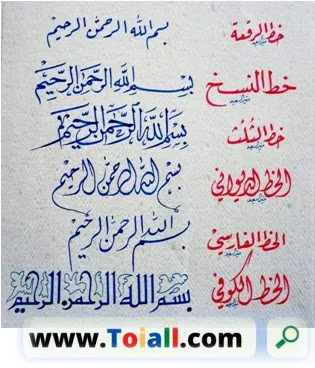 خط الرقعة بسم الله الرحمن الرحيم
خط النسخ بِسْمِ اللهِ الرَّحْمَنِ الرَّحِيْمِ
خط الثلث بِسْمِ اللهِ الرَّحْمَنِ الرَّحِيمِ
الخط الديواني بسم الله الرحمن الرحيم
الخط الفارسي بسم الله الرحمن الرحيم
الخط الكوفي بسم الله الرحمن الرحيم
www.Toiall.com